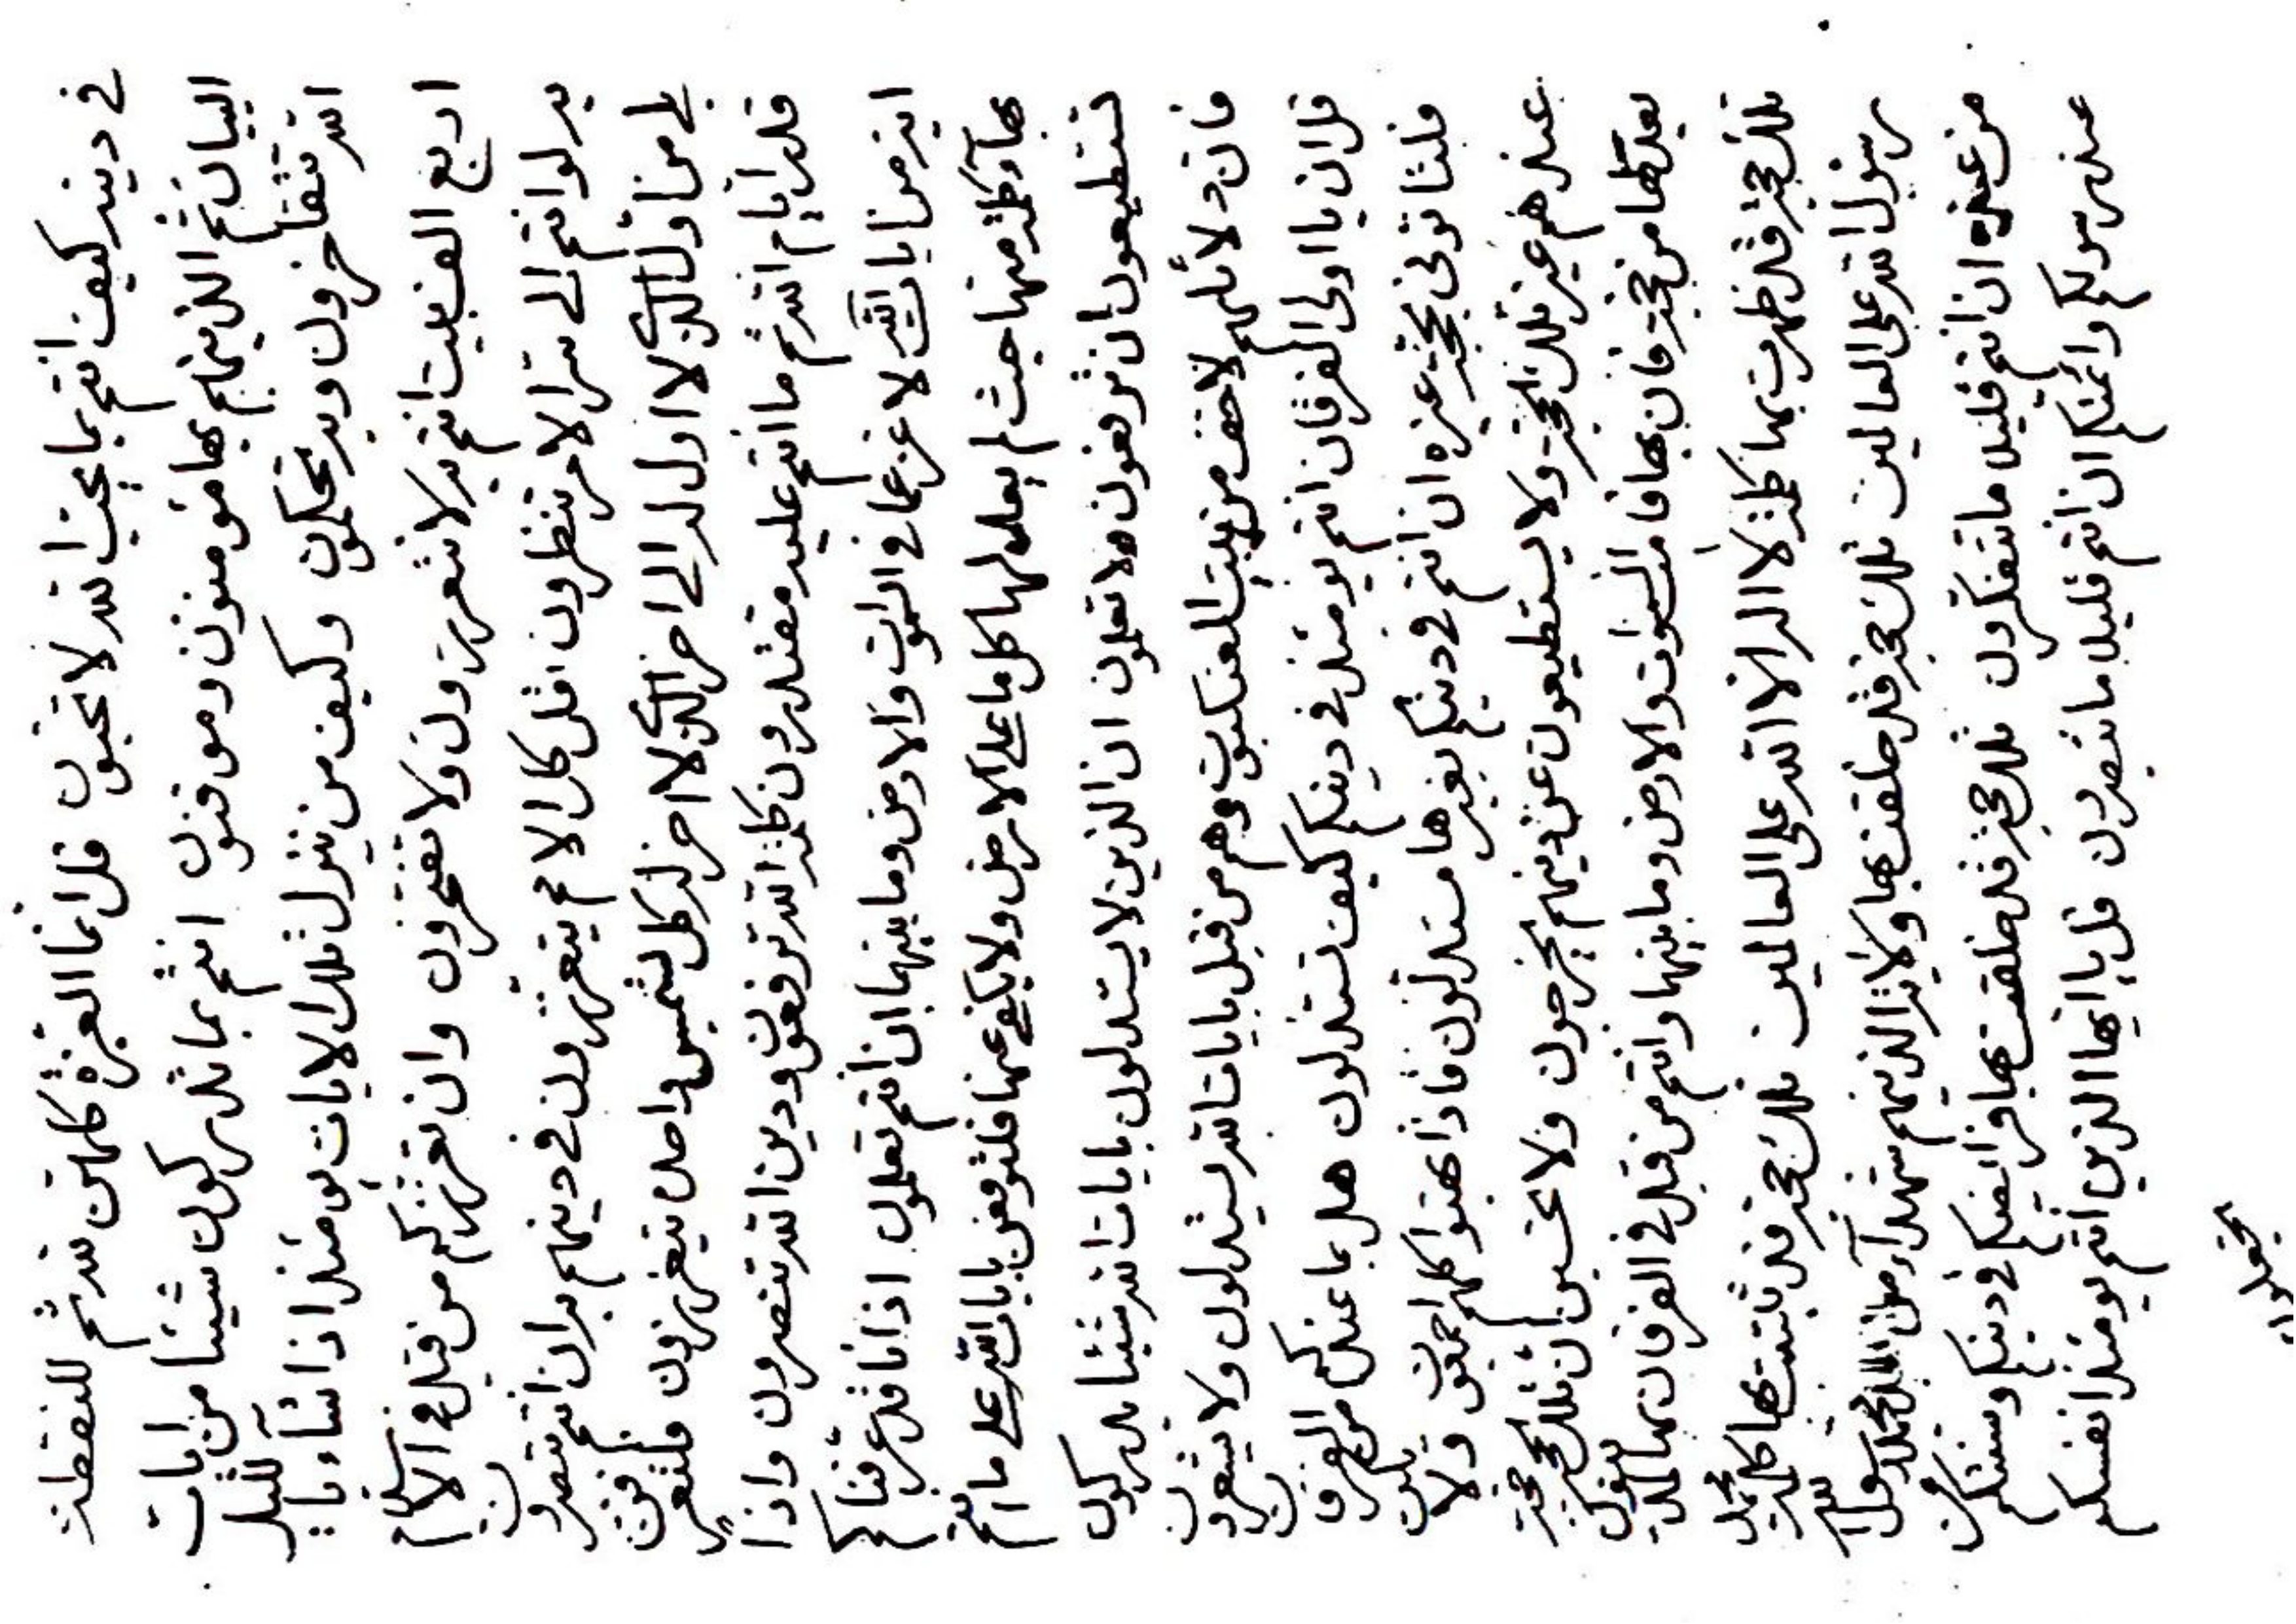 في دينه كيف انتم بما يحب الله لا تحبون قل انما العزة كلهن لله ثم للنقطة
البيان ثم الذينهم بها مؤمنون وموقنون انتم بما تدركون شيئا من ايات
الله تتفاخرون وبه تحكمون وكيف من ينزل تلك الايات يومئذ اذا شاء بالليل
اربع الف بيت انتم به لا تتعززون ولا تفتخرون وان تعززكم من قبل في الاسلام
به لو انتم الى سر الامر تنظرون اذ كل الامم يتعززون في دينهم به ان انتم تتصرون
بلى من اول الذي لا اول له الى اخر الذي لا اخر له كل لشمس واحد يتعززون فلتعرفن
قدر ايام الله ثم ما انتم عليه مقتدرون كلمة الله ترفعون ودين الله تنصرون واذا
اية من ايات الله لا عز عما في السموات والارض وما بينهما ان انتم تعلمون اذ انا قد عرفناكم
بها وكلمة منها حيث لم يعدلها كل ما على الارض ولا يكفي عنها فلترفعن بايات الله على ما انتم
تستطيعون ان ترفعون ولا تعلمون ان الذين لا يستدلون بايات الله شيئا يدركون
فان دلائلهم لاخف من بيت العنكبوت وهم من قبل بايات الله يستدلون ولا يشعرون
قل ان يا اولى الفرقان انتم يومئذ في دينكم كيف تستدلون هل بما عندكم من الفرقان
فلتاتوني بحجة غيره ان انتم في دينكم بغيرها مستدلون فاذا بهتوا كلهم اجمعون ولا يكن
عندهم غير تلك الحجة ولا يستطيعون عن دينهم يخرجون ولا تحسبن ان تلك حجة
بعدلها من حجة فان بها قامت السموات والارض وما بينهما وانتم من قبل في الفرقان بها لتدينون
تلك حجة قد ظهرت بها كلمة لا اله الا الله على العالمين تلك حجة قد ثابتت بها كلمة محمد
رسول الله على العالمين تلك حجة قد خلقت بها ولاية الذينهم شهداء من بعد محمد رسول الله
من عنده ان انتم قليلا ما تتفكرون تلك حجة قد خلقت بها فرائضكم في دينكم وسننكم من
عند رسولكم وائمتكم ان انتم قليلا ما تبصرون قل يا ايها الذين انتم يومئذ انفسكم
تجعلون